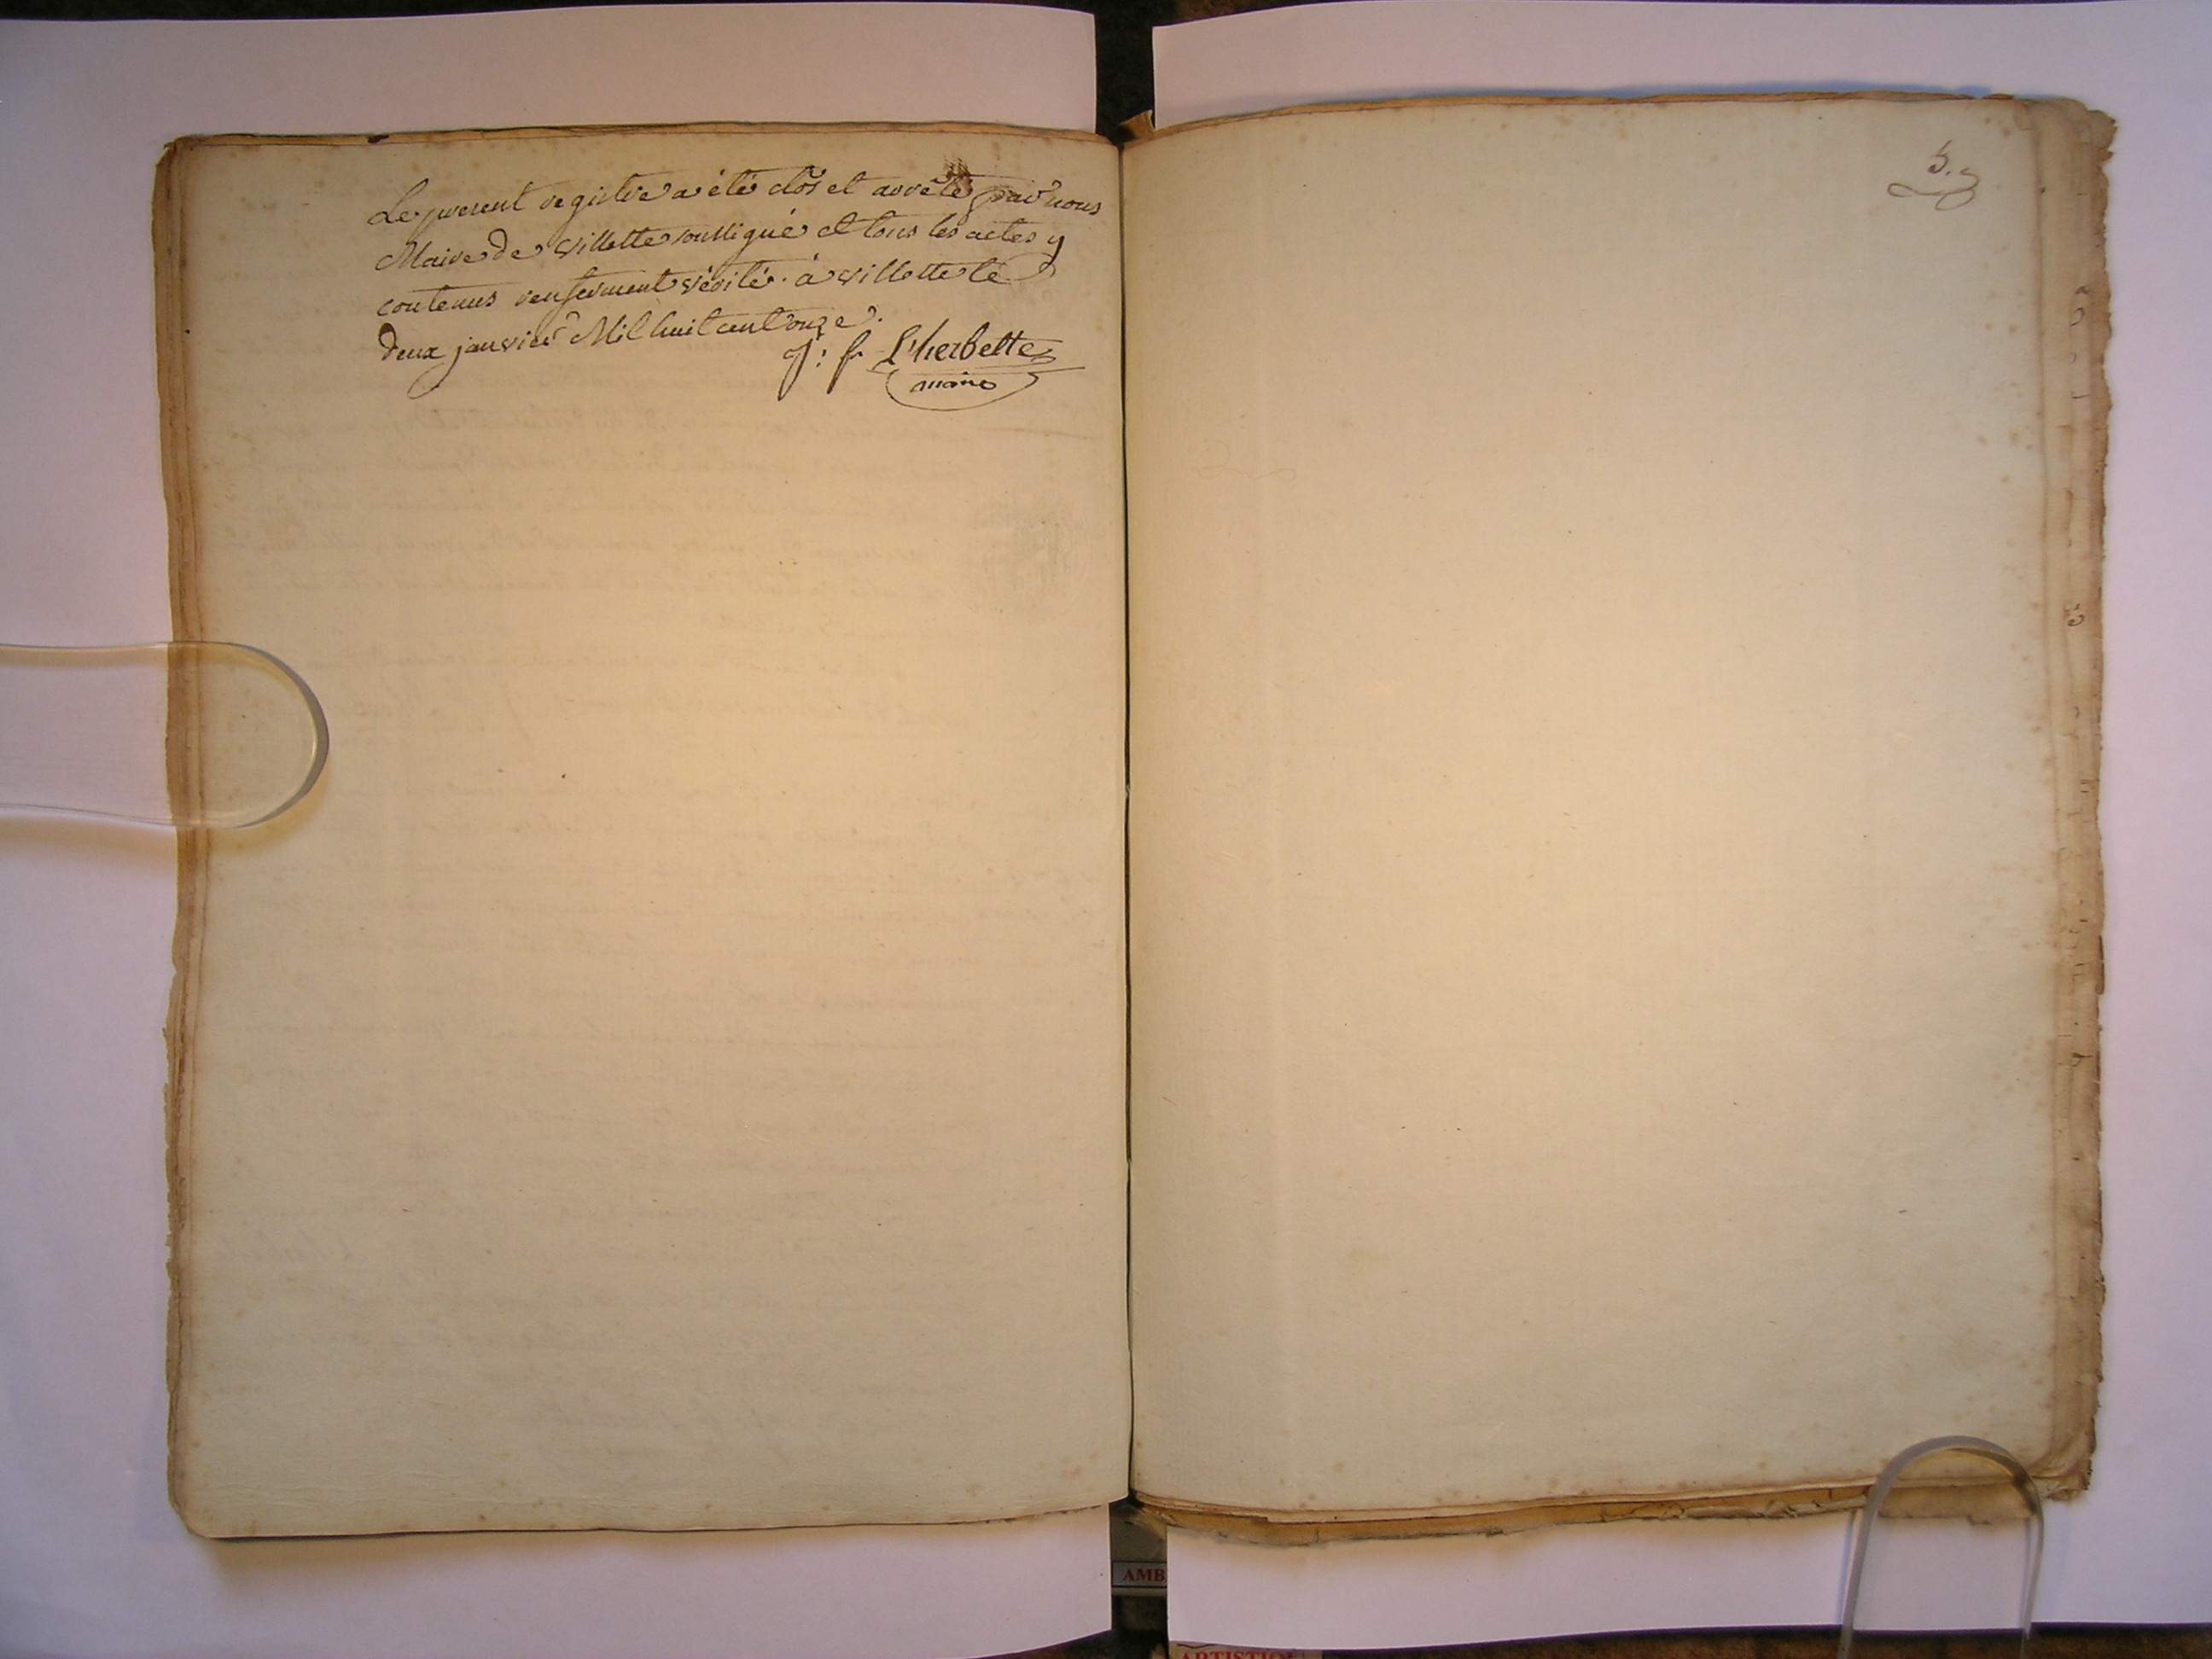 Le present registre a été clos et arrêté par nous
Maire de Villette soussigné et tous les actes y
contenus renferment vérité. à Villette le
deux janvier Mil huit cent onze.
J: f L'herbette
maire
5.
AMB
ARTISTIQU